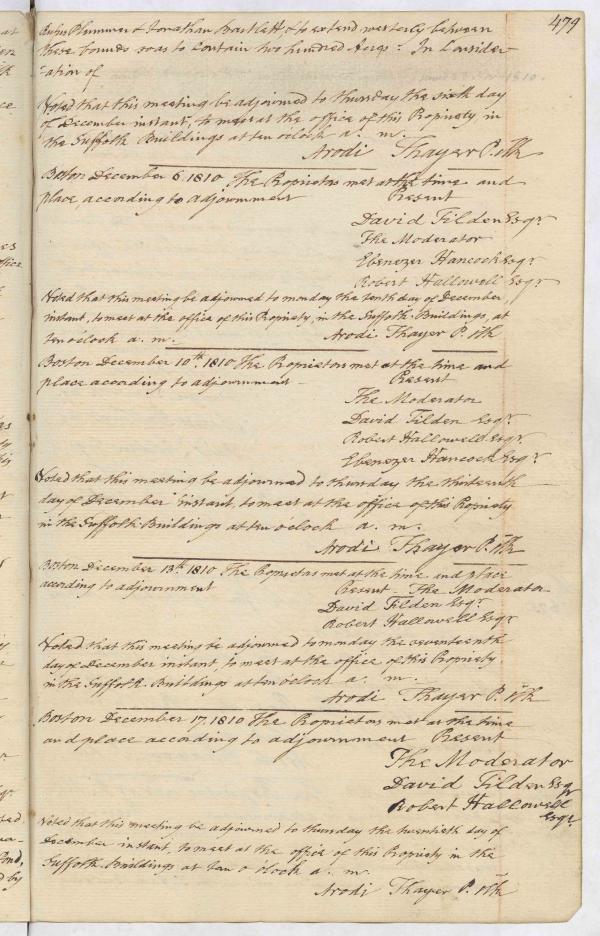 479
Rufus Plummer & Jonathan Bartlett & to extend westerly between
these bounds so as to Contain two hundred Acres - In Consider-
-ation of
Voted that this meeting be adjourned to thursday the sixth day
of December instant, to meet at the office of this Propriety in
the Suffolk Buildings at ten oClock a. m.
Arodi Thayer P. Clk
Boston December 6, 1810 The Proprietors met at the time and
place, according to adjournment Present
David Tilden Esqr.
The Moderator
Ebenezer Hancock Esqr.
Robert Hallowell Esqr.
Voted that this meeting be adjourned to monday the tenth day of December,
instant, to meet at the office of this Propriety, in the Suffolk-Buildings, at
ten oclock a. m. Arodi Thayer P. Clk
Boston December 10th. 1810 The Proprietors met at the time and
place according to adjournment - Present
The Moderator
David Tilden Esqr.
Robert Hallowell Esqr.
Ebenezer Hancock Esqr.
Voted that this meeting be adjourned to thursday the thirteenth
day of December instant, to meet at the office of this Propriety
in the Suffolk-Buildings at ten oclock a. m.
Arodi Thayer P. Clk
Boston December 13th. 1810 The Proprietors met at the time and place
according to adjournment Present The Moderator
David Tilden Esqr.
Robert Hallowell Esqr
Voted that this meeting be adjourned to monday the seventeenth
day of December instant, to meet at the office of this Propriety
in the Suffolk-Buildings at ten oclock a. m.
Arodi Thayer P. Clk
Boston December 17, 1810 The Proprietors met at the time
and place according to adjournment Present
The Moderator
David Tilden Esqr
Robert Hallowell
Esqr.
Voted that this meeting be adjourned to thursday the twentieth day of
December instant, to meet at the office of this Propriety in the
Suffolk-Buildings at ten o clock a. m.
Arodi Thayer P. Clk